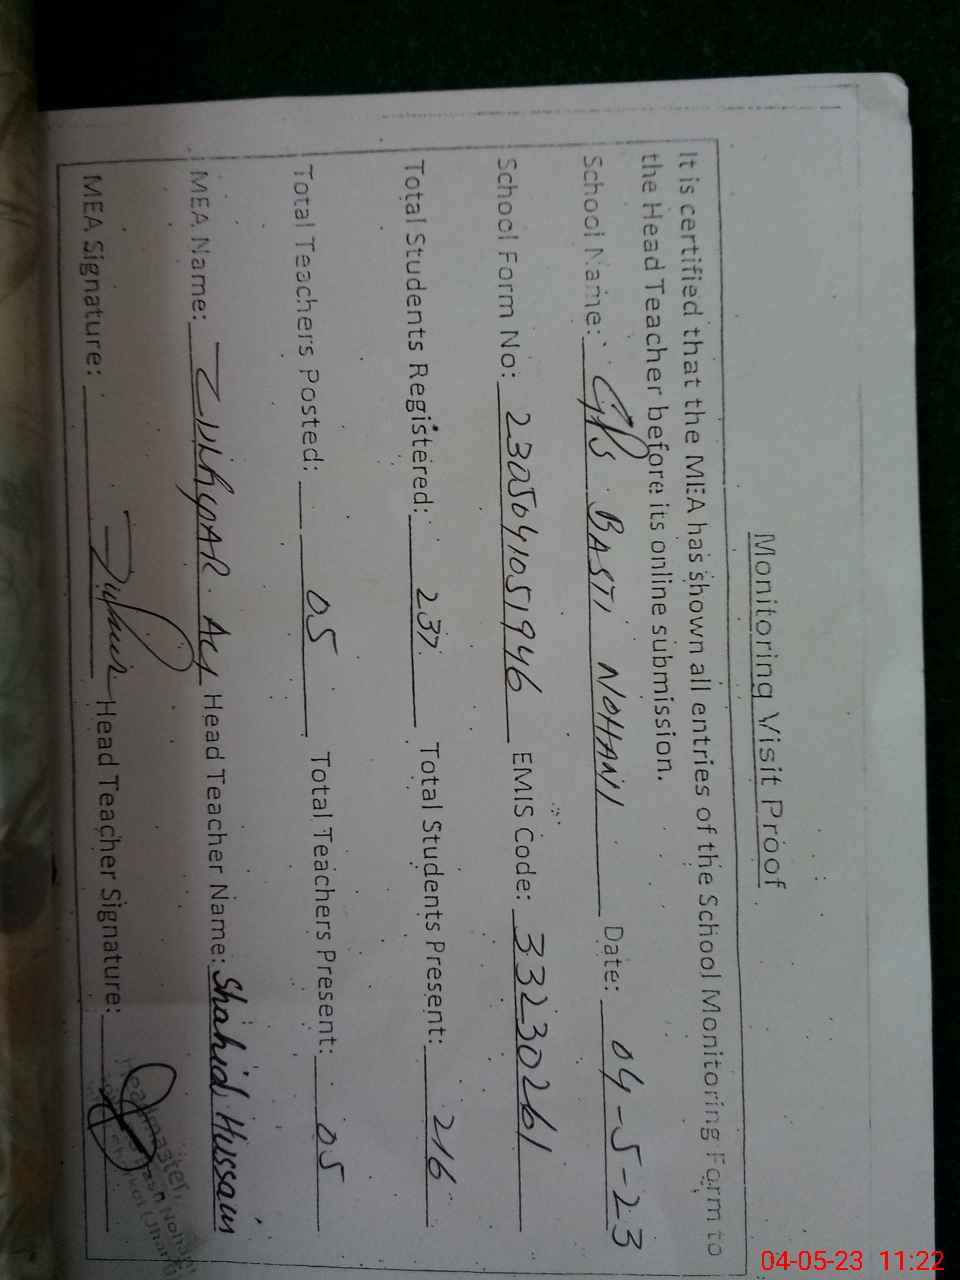 Monitoring Visit Proof
It is certified that the MEA has shown all entries of the School Monitoring Form to
the Head Teacher before its online submission.
School Name: GPS BASTI NOHANI Date: 04-5-23
School Form No: 2305041051946 EMIS Code: 33230261
Total Students Registered: 237 Total Students Present: 216
Total Teachers Posted: 05 Total Teachers Present: 05
MEA Name: Head Teacher Name: Shahid Hussain
MEA Signature: Head Teacher Signature:
Headmaster,
04-05-23 11:22